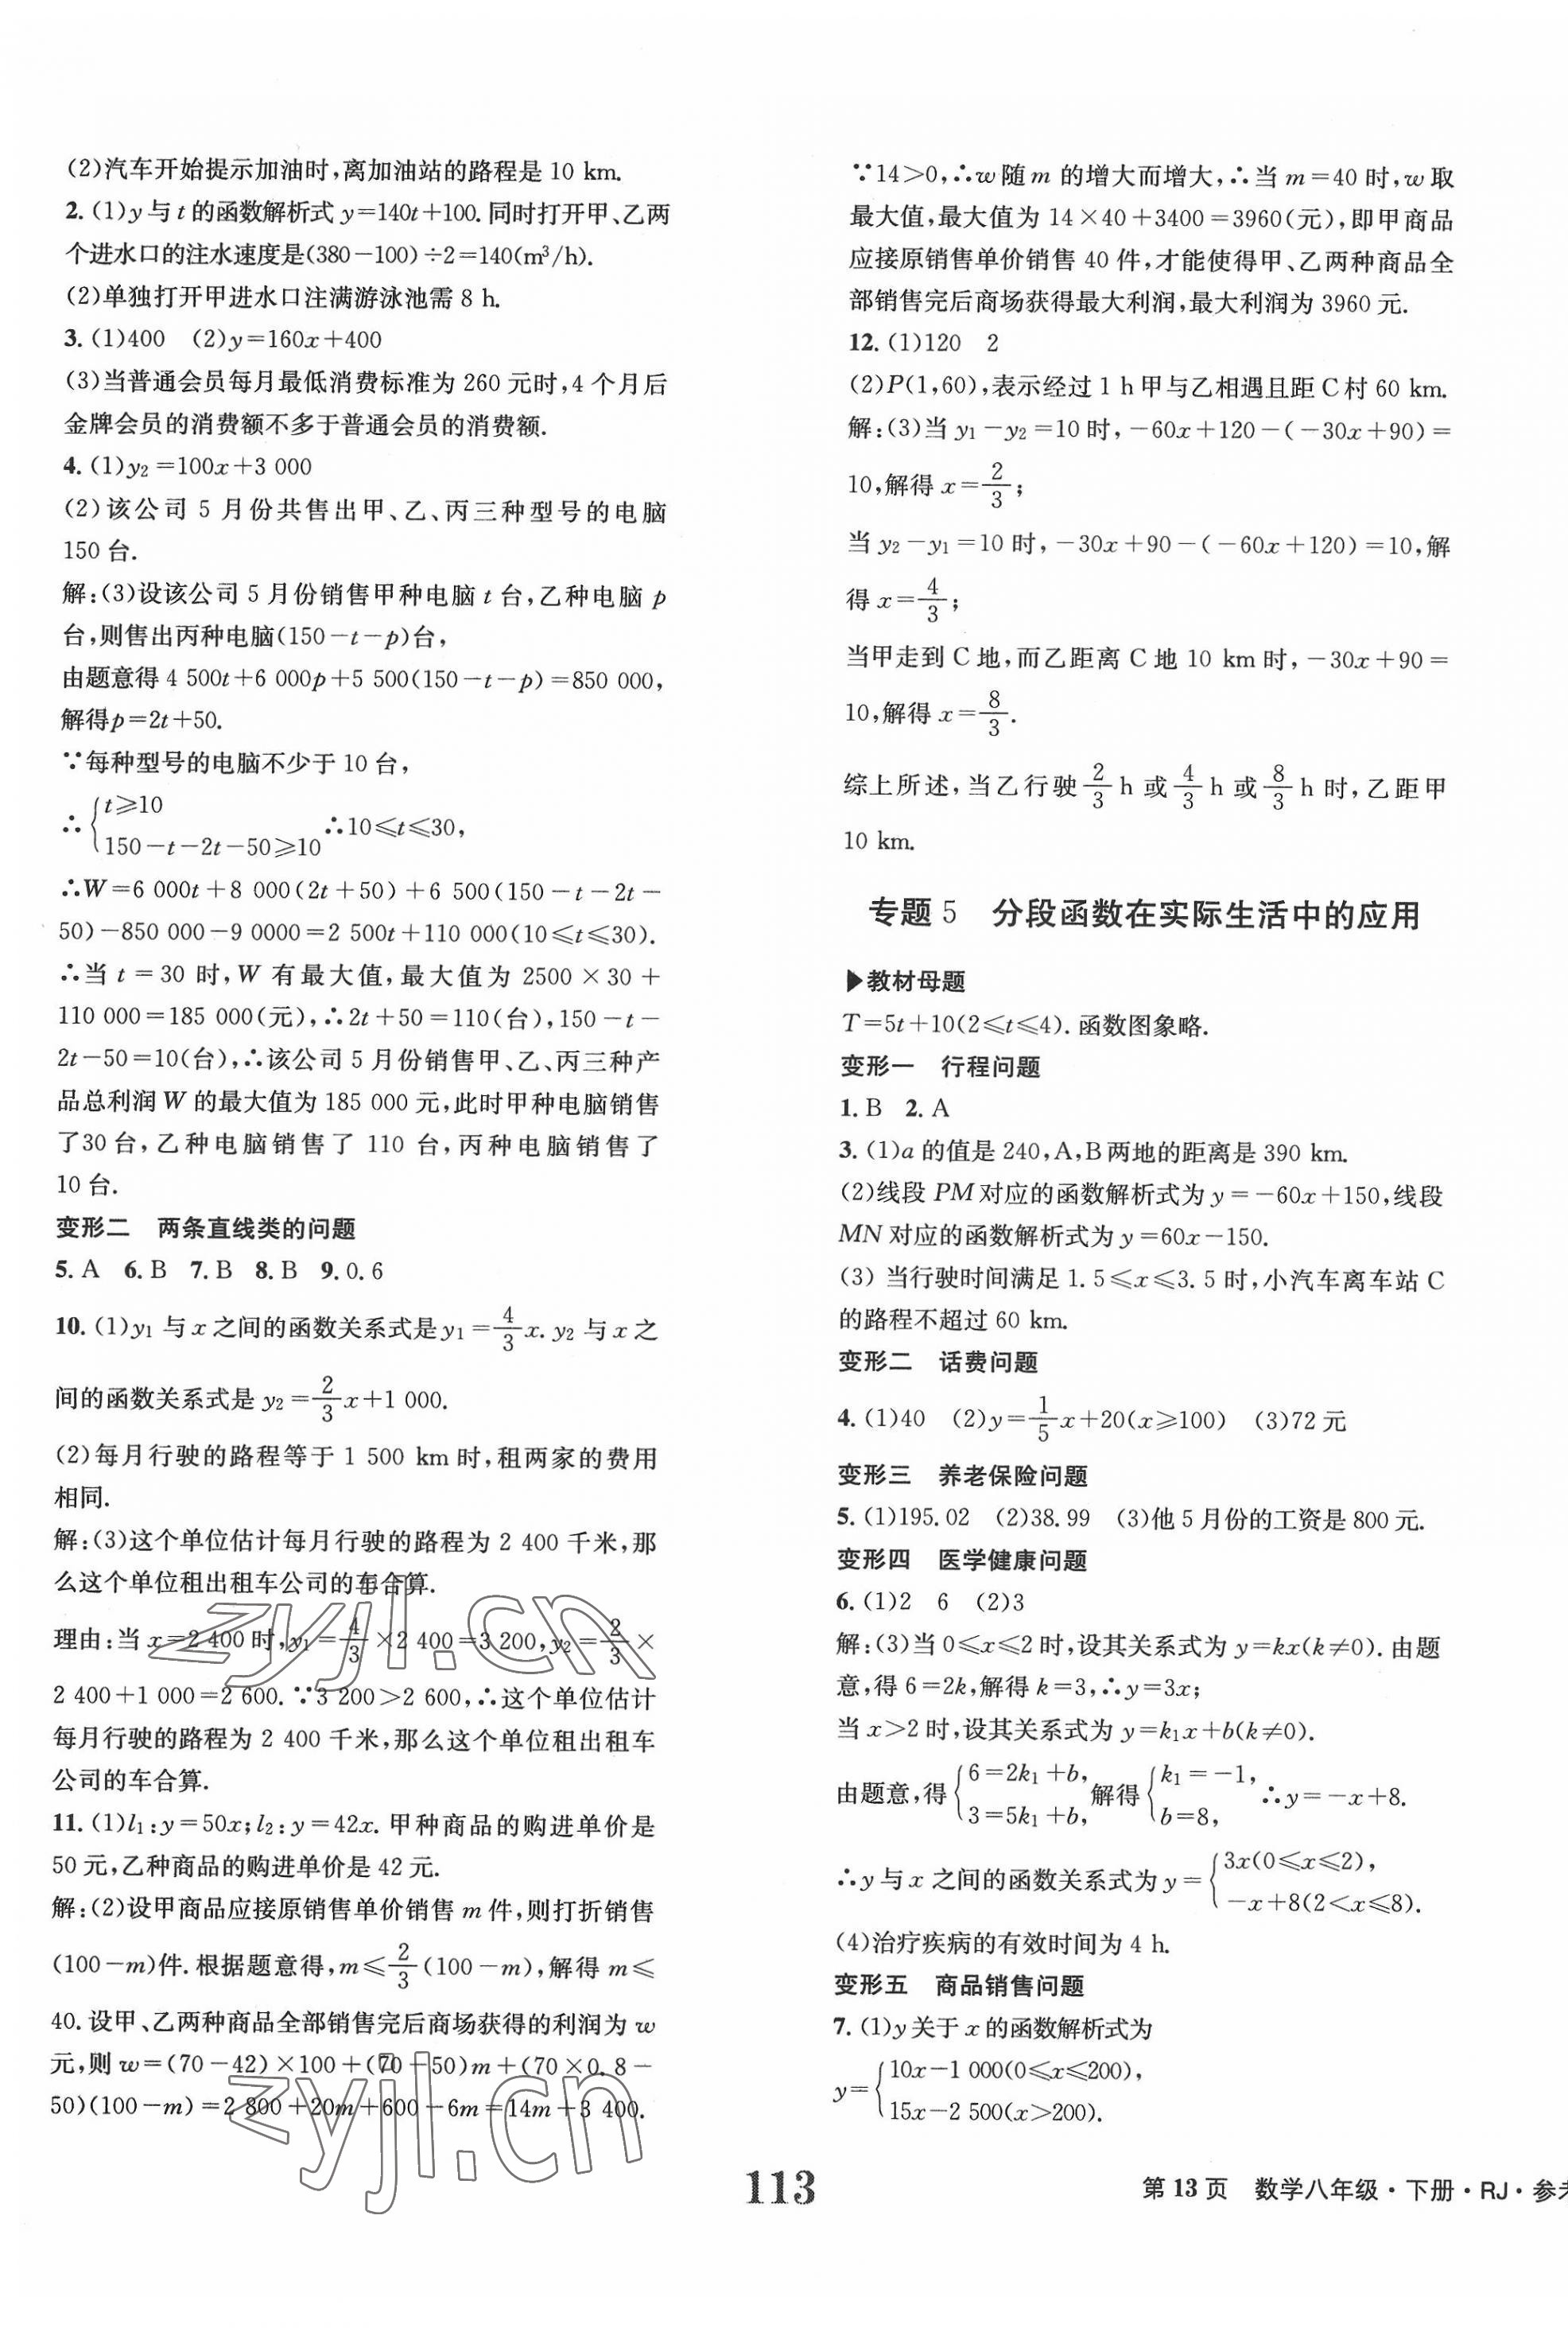 (2)汽车开始提示加油时,离加油站的路程是 10 km.
2. (1)y 与 t 的函数解析式 y=140t+100. 同时打开甲、乙两
个进水口的注水速度是(380-100)÷2=140(m³/h).
(2)单独打开甲进水口注满游泳池需 8 h.
3. (1)400 (2)y=160x+400
(3)当普通会员每月最低消费标准为 260 元时,4 个月后
金牌会员的消费额不多于普通会员的消费额.
4. (1)y₂=100x+3 000
(2)该公司 5 月份共售出甲、乙、丙三种型号的电脑
150 台.
解:(3)设该公司 5 月份销售甲种电脑 t 台,乙种电脑 p
台,则售出丙种电脑(150-t-p)台,
由题意得 4 500t+6 000p+5 500(150-t-p)=850 000,
解得p=2t+50.
∵每种型号的电脑不少于 10 台,
∴{t≥10
150-t-2t-50≥10 ∴10≤t≤30,
∴W=6 000t+8 000(2t+50)+6 500(150-t-2t-
50)-850 000-9 0000=2 500t+110 000(10≤t≤30).
∴当 t=30 时,W 有最大值,最大值为 2500×30+
110 000=185 000(元),∴2t+50=110(台),150-t-
2t-50=10(台),∴该公司 5 月份销售甲、乙、丙三种产
品总利润 W 的最大值为 185 000 元,此时甲种电脑销售
了30 台,乙种电脑销售了 110 台,丙种电脑销售了
10 台.
变形二 两条直线类的问题
5. A 6. B 7. B 8. B 9. 0. 6
10. (1)y₁ 与 x 之间的函数关系式是 y₁=4/3x. y₂ 与 x 之
间的函数关系式是 y₂=2/3x+1 000.
(2)每月行驶的路程等于 1 500 km 时,租两家的费用
相同.
解:(3)这个单位估计每月行驶的路程为 2 400 千米,那
么这个单位租出租车公司的车合算.
理由:当 x=2 400 时,y₁=4/3×2 400=3 200,y₂=2/3×
2 400+1 000=2 600. ∵3 200>2 600,∴这个单位估计
每月行驶的路程为 2 400 千米,那么这个单位租出租车
公司的车合算.
11. (1)l₁:y=50x;l₂:y=42x. 甲种商品的购进单价是
50 元,乙种商品的购进单价是 42 元.
解:(2)设甲商品应接原销售单价销售 m 件,则打折销售
(100-m)件. 根据题意得,m≤2/3(100-m),解得 m≤
40. 设甲、乙两种商品全部销售完后商场获得的利润为 w
元,则 w=(70-42)×100+(70-50)m+(70×0. 8-
50)(100-m)=2 800+20m+600-6m=14m+3 400.
∵14>0,∴w 随 m 的增大而增大,∴当 m=40 时,w 取
最大值,最大值为 14×40+3400=3960(元),即甲商品
应接原销售单价销售 40 件,才能使得甲、乙两种商品全
部销售完后商场获得最大利润,最大利润为 3960 元.
12. (1)120 2
(2)P(1,60),表示经过 1 h 甲与乙相遇且距 C 村 60 km.
解:(3)当 y₁-y₂=10 时,-60x+120-(-30x+90)=
10,解得 x=2/3;
当 y₂-y₁=10 时,-30x+90-(-60x+120)=10,解
得 x=4/3;
当甲走到 C 地,而乙距离 C 地 10 km 时,-30x+90=
10,解得 x=8/3.
综上所述,当乙行驶 2/3 h 或 4/3 h 或 8/3 h 时,乙距甲
10 km.
专题 5 分段函数在实际生活中的应用
▶教材母题
T=5t+10(2≤t≤4). 函数图象略.
变形一 行程问题
1. B 2. A
3. (1)a 的值是 240,A,B两地的距离是 390 km.
(2)线段 PM 对应的函数解析式为 y=-60x+150,线段
MN 对应的函数解析式为 y=60x-150.
(3) 当行驶时间满足 1. 5≤x≤3. 5 时,小汽车离车站 C
的路程不超过 60 km.
变形二 话费问题
4. (1)40 (2)y=1/5x+20(x≥100) (3)72 元
变形三 养老保险问题
5. (1)195. 02 (2)38. 99 (3)他 5 月份的工资是 800 元.
变形四 医学健康问题
6. (1)2 6 (2)3
解:(3)当 0≤x≤2 时,设其关系式为 y=kx(k≠0). 由题
意,得 6=2k,解得 k=3,∴y=3x;
当 x>2 时,设其关系式为 y=k₁x+b(k≠0).
由题意,得{6=2k₁+b, 3=5k₁+b, 解得{k₁=-1, b=8, ∴y=-x+8.
∴y 与 x 之间的函数关系式为 y={3x(0≤x≤2),
-x+8(2<x≤8).
(4)治疗疾病的有效时间为 4 h.
变形五 商品销售问题
7. (1)y 关于 x 的函数解析式为
y={10x-1 000(0≤x≤200),
15x-2 500(x>200).
zyjl.cn
zyjl.cn
113
第 13 页 数学八年级·下册·RJ·参